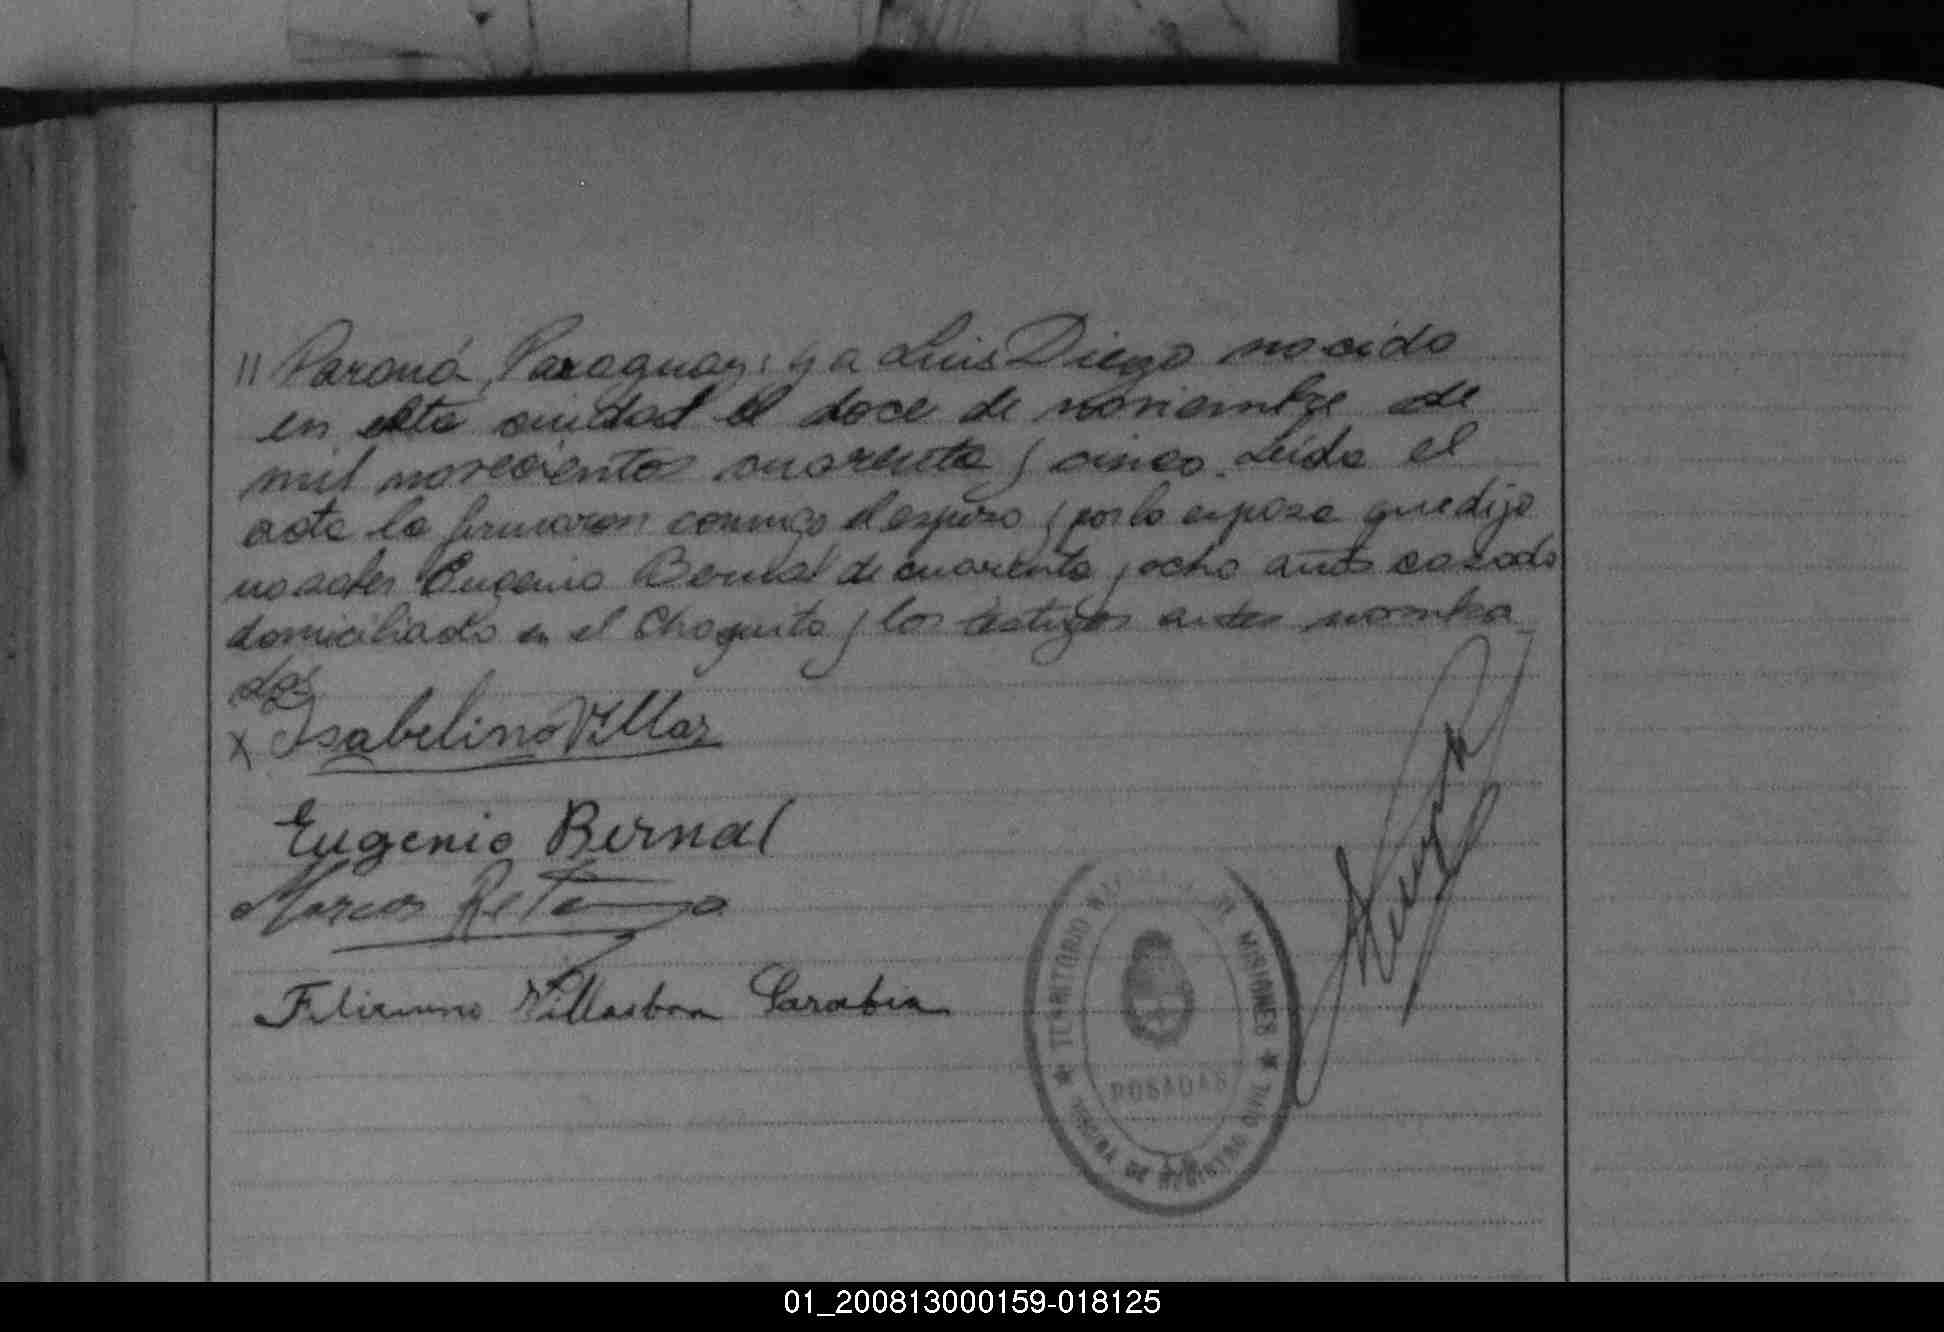 " Paraná, Paraguay; y a Luis Diego nacido
en esta ciudad el doce de noviembre de
mil novecientos cuarenta y cinco. Leída el
acta la firmaron conmigo el esposo y por la esposa que dijo
no saber Eugenio Bernal de cuarenta y ocho años casado
domiciliado en el Chaquito y los testigos antes nombra
dos
x Isabelino Villar
Eugenio Bernal
Marcos
Villasboa Sarabia
TERRITORIO DE MISIONES
POSADAS
OFICINA DE REGISTRO CIVIL
01_200813000159-018125